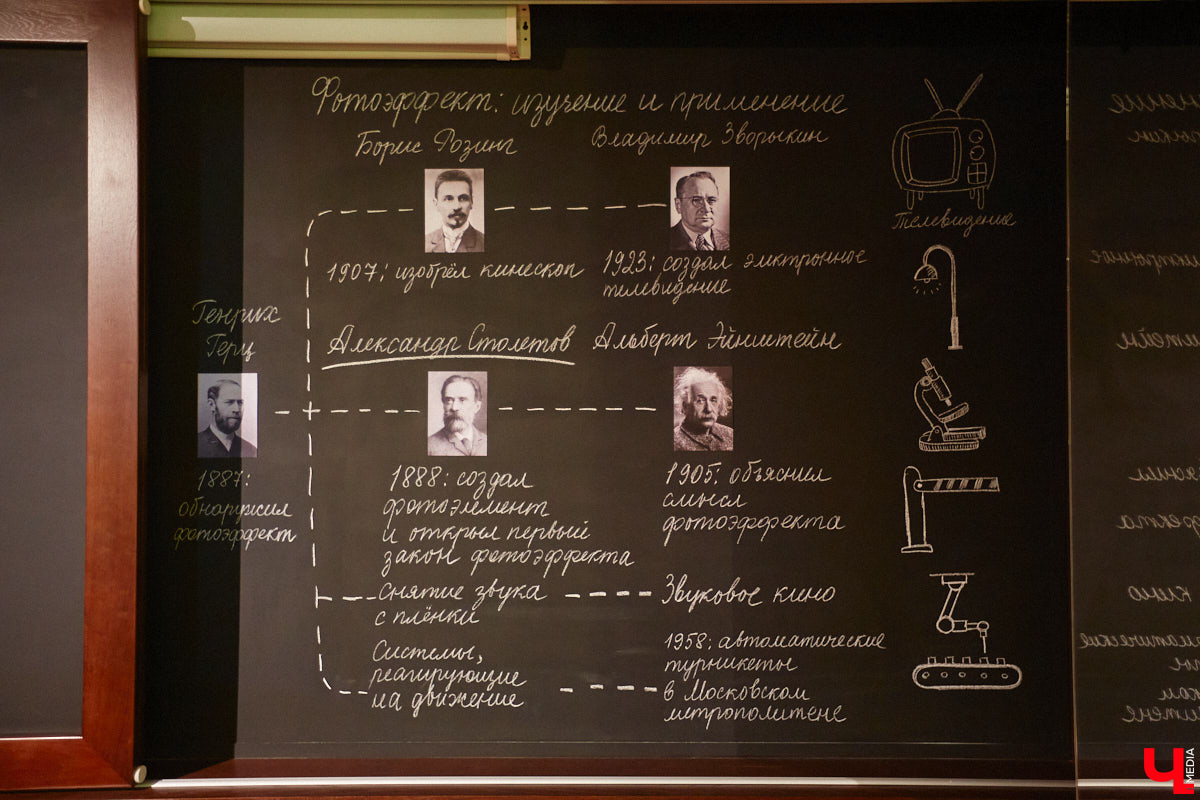 Фотоэффект: изучение и применение
Борис Розинг
Владимир Зворыкин
1907: изобрёл кинескоп
1923: создал электронное
телевидение
Телевидение
Генрих
Герц
1887:
обнаружил
фотоэффект
Александр Столетов
Альберт Эйнштейн
1888: создал
фотоэлемент
и открыл первый
закон фотоэффекта
1905: объяснил
смысл
фотоэффекта
снятие звука
с плёнки
Звуковое кино
Системы,
реагирующие
на движение
1958: автоматические
турникеты
в Московском
метрополитене
Ч
MEDIA